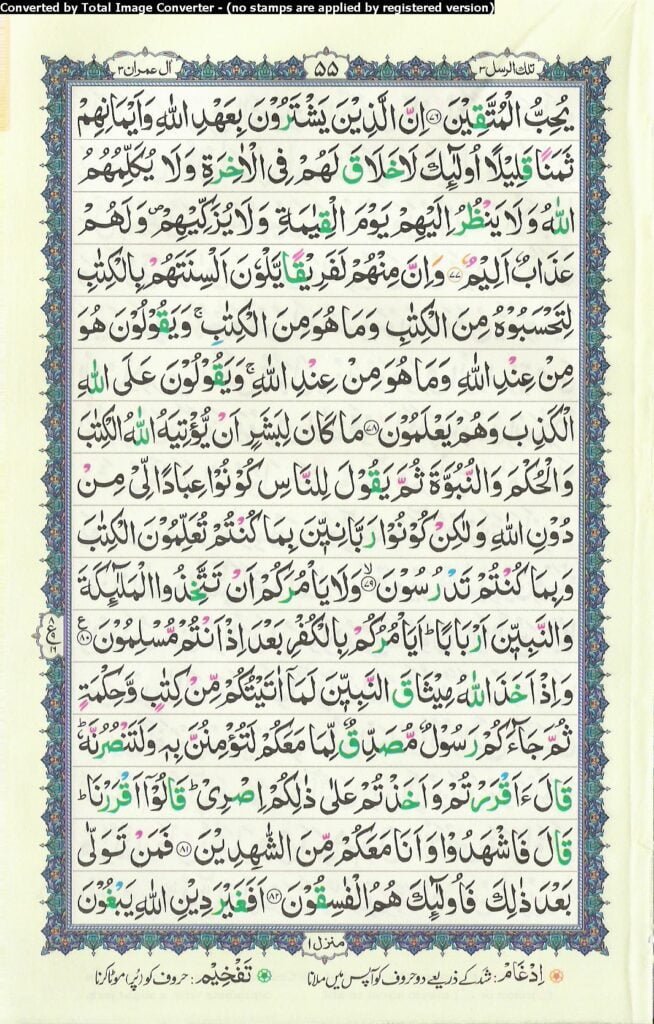 Converted by Total Image Converter - (no stamps are applied by registered version)
تلك الرسل ٣
۵۵
اٰل عمران ٣
يُحِبُّ الْمُتَّقِيْنَ ﴿٧٦﴾ اِنَّ الَّذِيْنَ يَشْتَرُوْنَ بِعَهْدِ اللّٰهِ وَاَيْمَانِهِمْ
ثَمَنًا قَلِيْلًا اُولٰٓئِكَ لَا خَلَاقَ لَهُمْ فِى الْاٰخِرَةِ وَلَا يُكَلِّمُهُمُ
اللّٰهُ وَلَا يَنْظُرُ اِلَيْهِمْ يَوْمَ الْقِيٰمَةِ وَلَا يُزَكِّيْهِمْ ۖ وَلَهُمْ
عَذَابٌ اَلِيْمٌ ﴿٧٧﴾ وَاِنَّ مِنْهُمْ لَفَرِيْقًا يَّلْوٗنَ اَلْسِنَتَهُمْ بِالْكِتٰبِ
لِتَحْسَبُوْهُ مِنَ الْكِتٰبِ وَمَا هُوَ مِنَ الْكِتٰبِ ۚ وَيَقُوْلُوْنَ هُوَ
مِنْ عِنْدِ اللّٰهِ وَمَا هُوَ مِنْ عِنْدِ اللّٰهِ ۚ وَيَقُوْلُوْنَ عَلَى اللّٰهِ
الْكَذِبَ وَهُمْ يَعْلَمُوْنَ ﴿٧٨﴾ مَا كَانَ لِبَشَرٍ اَنْ يُّؤْتِيَهُ اللّٰهُ الْكِتٰبَ
وَالْحُكْمَ وَالنُّبُوَّةَ ثُمَّ يَقُوْلَ لِلنَّاسِ كُوْنُوْا عِبَادًا لِّىْ مِنْ
دُوْنِ اللّٰهِ وَلٰكِنْ كُوْنُوْا رَبَّانِيّٖنَ بِمَا كُنْتُمْ تُعَلِّمُوْنَ الْكِتٰبَ
وَبِمَا كُنْتُمْ تَدْرُسُوْنَ ۙ﴿٧٩﴾ وَلَا يَاْمُرَكُمْ اَنْ تَتَّخِذُوا الْمَلٰٓئِكَةَ
وَالنَّبِيّٖنَ اَرْبَابًا ؕ اَيَاْمُرُكُمْ بِالْكُفْرِ بَعْدَ اِذْ اَنْتُمْ مُّسْلِمُوْنَ ﴿٨٠﴾ ع
٨ ع ٩ ١٦
وَاِذْ اَخَذَ اللّٰهُ مِيْثَاقَ النَّبِيّٖنَ لَمَاۤ اٰتَيْتُكُمْ مِّنْ كِتٰبٍ وَّحِكْمَةٍ
ثُمَّ جَآءَكُمْ رَسُوْلٌ مُّصَدِّقٌ لِّمَا مَعَكُمْ لَتُؤْمِنُنَّ بِهٖ وَلَتَنْصُرُنَّهٗ ؕ
قَالَ ءَاَقْرَرْتُمْ وَاَخَذْتُمْ عَلٰى ذٰلِكُمْ اِصْرِىْ ؕ قَالُوْۤا اَقْرَرْنَا ؕ
قَالَ فَاشْهَدُوْا وَاَنَا مَعَكُمْ مِّنَ الشّٰهِدِيْنَ ﴿٨١﴾ فَمَنْ تَوَلّٰى
بَعْدَ ذٰلِكَ فَاُولٰٓئِكَ هُمُ الْفٰسِقُوْنَ ﴿٨٢﴾ اَفَغَيْرَ دِيْنِ اللّٰهِ يَبْغُوْنَ
منزل ١
اِدْغَام: شد کے ذریعے دو حروف کو آپس میں ملانا تَفْخِیْم: حروف کو (پُر) موٹا کرنا